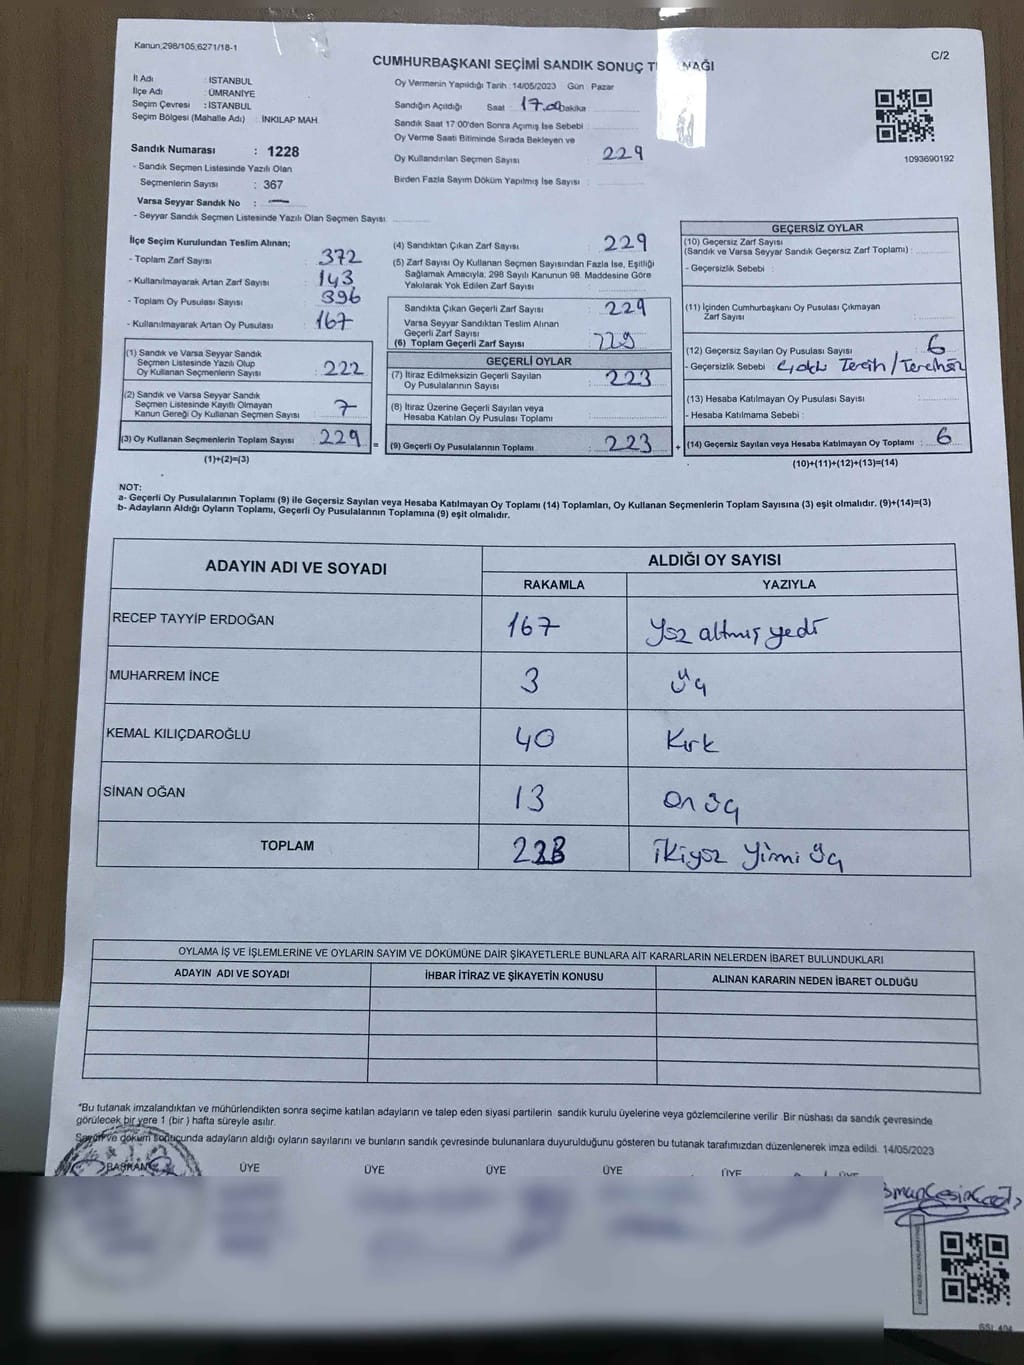 Kanun;298/105;6271/18-1
C/2
CUMHURBAŞKANI SEÇİMİ SANDIK SONUÇ
İl Adı : İSTANBUL
İlçe Adı : ÜMRANİYE
Seçim Çevresi : İSTANBUL
Seçim Bölgesi (Mahalle Adı) : İNKILAP MAH.
Sandık Numarası : 1228
- Sandık Seçmen Listesinde Yazılı Olan
Seçmenlerin Sayısı : 367
Varsa Seyyar Sandık No : —
- Seyyar Sandık Seçmen Listesinde Yazılı Olan Seçmen Sayısı :
Oy Vermenin Yapıldığı Tarih :14/05/2023 Gün : Pazar
Sandığın Açıldığı Saat : 17.00 Dakika :
Sandık Saat 17:00'den Sonra Açımış İse Sebebi :
Oy Verme Saati Bitiminde Sırada Bekleyen ve
Oy Kullandırılan Seçmen Sayısı : 229
Birden Fazla Sayım Döküm Yapılmış İse Sayısı :
1093690192
İlçe Seçim Kurulundan Teslim Alınan;
- Toplam Zarf Sayısı : 372
- Kullanılmayarak Artan Zarf Sayısı : 143
- Toplam Oy Pusulası Sayısı : 396
- Kullanılmayarak Artan Oy Pusulası : 167
(1) Sandık ve Varsa Seyyar Sandık
Seçmen Listesinde Yazılı Olup
Oy Kullanan Seçmenlerin Sayısı : 222
(2) Sandık ve Varsa Seyyar Sandık
Seçmen Listesinde Kayıtlı Olmayan
Kanun Gereği Oy Kullanan Seçmen Sayısı : 7
(3) Oy Kullanan Seçmenlerin Toplam Sayısı : 229 =
(1)+(2)=(3)
(4) Sandıktan Çıkan Zarf Sayısı : 229
(5) Zarf Sayısı Oy Kullanan Seçmen Sayısından Fazla İse, Eşitliği
Sağlamak Amacıyla, 298 Sayılı Kanunun 98. Maddesine Göre
Yakılarak Yok Edilen Zarf Sayısı :
Sandıkta Çıkan Geçerli Zarf Sayısı : 229
Varsa Seyyar Sandıktan Teslim Alınan
Geçerli Zarf Sayısı :
(6) Toplam Geçerli Zarf Sayısı : 229
GEÇERLİ OYLAR
(7) İtiraz Edilmeksizin Geçerli Sayılan
Oy Pusulalarının Sayısı : 223
(8) İtiraz Üzerine Geçerli Sayılan veya
Hesaba Katılan Oy Pusulası Toplamı :
(9) Geçerli Oy Pusulalarının Toplamı : 223 +
GEÇERSİZ OYLAR
(10) Geçersiz Zarf Sayısı
(Sandık ve Varsa Seyyar Sandık Geçersiz Zarf Toplamı) :
- Geçersizlik Sebebi :
(11) İçinden Cumhurbaşkanı Oy Pusulası Çıkmayan
Zarf Sayısı :
(12) Geçersiz Sayılan Oy Pusulası Sayısı : 6
- Geçersizlik Sebebi : Çoklu Tercih / Tercihsiz
(13) Hesaba Katılmayan Oy Pusulası Sayısı :
- Hesaba Katılmama Sebebi :
(14) Geçersiz Sayılan veya Hesaba Katılmayan Oy Toplamı : 6
(10)+(11)+(12)+(13)=(14)
NOT:
a- Geçerli Oy Pusulalarının Toplamı (9) ile Geçersiz Sayılan veya Hesaba Katılmayan Oy Toplamı (14) Toplamları, Oy Kullanan Seçmenlerin Toplam Sayısına (3) eşit olmalıdır. (9)+(14)=(3)
b- Adayların Aldığı Oyların Toplamı, Geçerli Oy Pusulalarının Toplamına (9) eşit olmalıdır.
ADAYIN ADI VE SOYADI
ALDIĞI OY SAYISI
RAKAMLA YAZIYLA
RECEP TAYYİP ERDOĞAN 167 Yüz altmış yedi
MUHARREM İNCE 3 Üç
KEMAL KILIÇDAROĞLU 40 Kırk
SİNAN OĞAN 13 On üç
TOPLAM 223 İkiyüz Yirmi Üç
OYLAMA İŞ VE İŞLEMLERİNE VE OYLARIN SAYIM VE DÖKÜMÜNE DAİR ŞİKAYETLERLE BUNLARA AİT KARARLARIN NELERDEN İBARET BULUNDUKLARI
ADAYIN ADI VE SOYADI İHBAR İTİRAZ VE ŞİKAYETİN KONUSU ALINAN KARARIN NEDEN İBARET OLDUĞU
*Bu tutanak imzalandıktan ve mühürlendikten sonra seçime katılan adayların ve talep eden siyasi partilerin sandık kurulu üyelerine veya gözlemcilerine verilir. Bir nüshası da sandık çevresinde
görülecek bir yere 1 (bir ) hafta süreyle asılır.
Sayım ve döküm sonucunda adayların aldığı oyların sayılarını ve bunların sandık çevresinde bulunanlara duyurulduğunu gösteren bu tutanak tarafımızdan düzenlenerek imza edildi. 14/05/2023
BAŞKAN ÜYE ÜYE ÜYE ÜYE ÜYE ÜYE